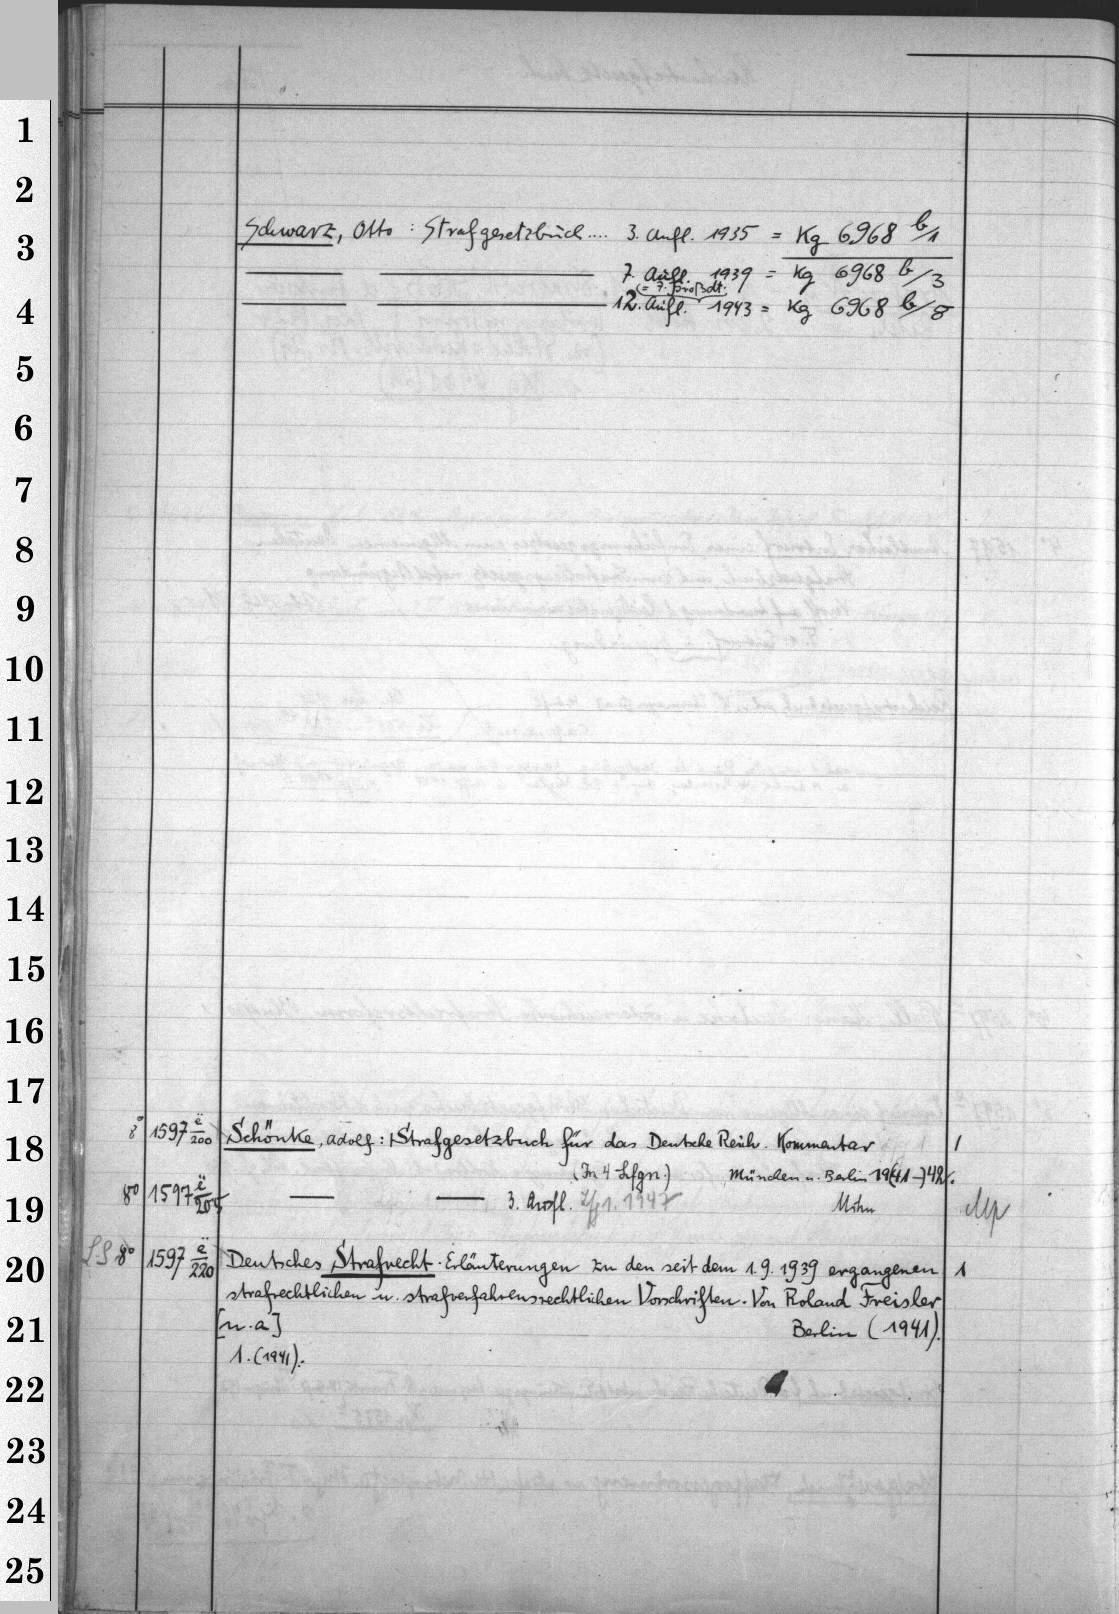 Schwarz, Otto : Strafgesetzbuch.... 3. Aufl. 1935 = Kg 6968 b/1
7. Aufl. 1939 = Kg 6968 b/3
(= 7. Großdt.
12. Aufl. 1943 = Kg 6968 b/8
8° 1597 ë/200 Schönke, Adolf : Strafgesetzbuch für das Deutsche Reich. Kommentar 1
(In 4 Lfgn.) München u. Berlin 19(41-)42.
8° 1597 ë/205 — — 3. Aufl. Lfg 1. 1947
8° 1597 ë/220 Deutsches Strafrecht. Erläuterungen zu den seit dem 1.9.1939 ergangenen 1
strafrechtlichen u. strafverfahrensrechtlichen Vorschriften. Von Roland Freisler
[u.a] Berlin (1941).
1. (1941).
1
2
3
4
5
6
7
8
9
10
11
12
13
14
15
16
17
18
19
20
21
22
23
24
25